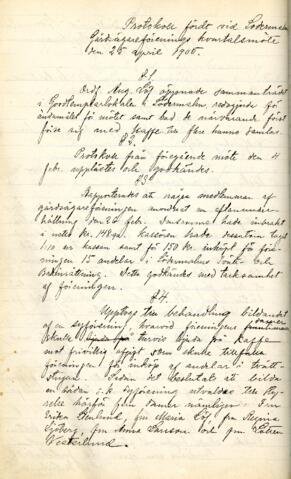 Protokoll fördt vid Södermalms
Gårdsägareförenings kvartalsmöte
den 25 April 1900.
§ 1.
Ordf. Aug. Löf öppnade sammanträdet
i Goodtemplarlokalen i Södermalm, redogjorde för
ändamålet för mötet samt bad de närvarande först
förse sig med kaffe tils flere hunno samlas.
§ 2.
Protokoll från föregående möte den 4
febr. upplästes och godkändes.
§ 3.
Rapporterades att några medlemmar af
gårdsägareföreningen anordnat en aftonunder-
hållning den 20 febr. Densamma hade inbrakt
i netto Kr. 148 . Kassören hade dessutom tagit
1:10 ur kassan samt för 150 kr. inköpt för för-
ningen 15 andelar i Södermalms Tvätt- och
Badinrättning. Detta godkändes med tacksamhet
af föreningen.
§ 4.
Upptogs till behandling bildandet
af en syförening, hvarvid föreningens damer
skulle turvis bjuda på kaffe
mot frivillig afgift som skulle tillfalla
föreningen för inköp af andelar i tvätt-
stugan. Sedan det beslutats att bilda
en sådan s.k. syförening utvaldes till sty-
relse härför fem damer nämligen: Fru
Erika Enlund, fru Maria Löf, fru Regina
Sjöberg, fru Anna Larsson och fru Lotten
Vesterlund.